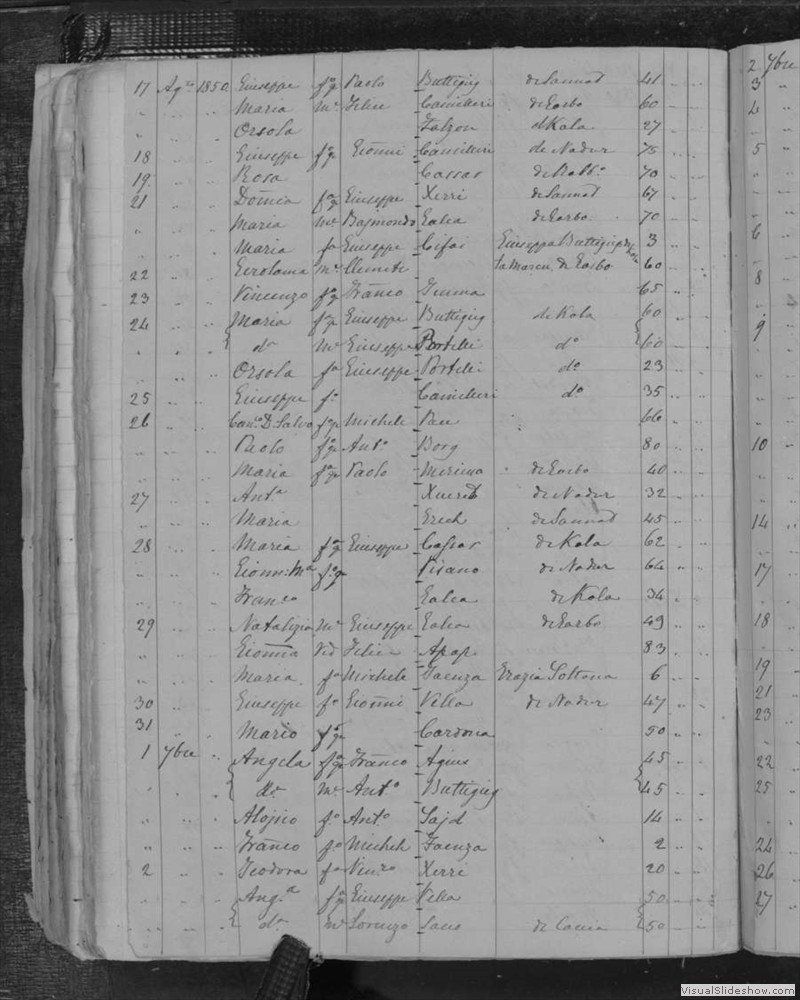 17 Ag.to 1850 Giuseppe f.o q.m Paolo Buttigieg de Sannat 41
" " " Maria M.e Felice Camilleri de Garbo 60
" " " Orsola Falzon de Kala 27
18 " " Giuseppe f.o q.m Giõnni Camilleri de Nadur 75
19 " " Rosa Cassar de Rabb.o 70
21 " " Dom̃ca f.a q.m Giuseppe Xerri de Sannat 67
" " " Maria M.e Rajmondo Galea de Garbo 70
" " " Maria f.a Giuseppe Cifai Giuseppa Buttigieg 3
22 " " Gerolama M.e Clemente de Garbo 60
23 " " Vincenzo f.o q.m Franco Grima 65
24 " " Maria f.a q.m Giuseppe Buttigieg de Kala 60
" " " d.a M.e Giuseppe Portelli d.o 60
" " " Orsola f.a Giuseppe Portelli d.o 23
25 " " Giuseppe f.o Camilleri d.o 35
26 " " Can.co D. Salvo f.o q.m Michele 66
" " " Paolo f.o q.m Ant.o Borg 80
" " " Maria f.a q.m Paolo de Garbo 40
27 " " Ant.a Xuereb de Nadur 32
" " " Maria Grech de Sannat 45
28 " " Maria f.a q.m Giuseppe Cassar de Kala 62
" " " Gionni M.a f.o q.m Pisano de Nadur 64
" " " Fran.co Galea de Kala 34
29 " " Natalizia M.e Giuseppe Galea de Garbo 49
" " " Giõnna Vid. Felice Apap 83
" " " Maria f.a Michele Faenza Grazia Sottana 6
30 " " Giuseppe f.o Giõnni Vella de Nadur 47
31 " " Mario f.o q.m Cardona 50
1 7bre " Angela f.a q.m Franco Agius 45
" " " d.a M.e Ant.o Buttigieg 45
" " " Alojsio f.o Ant.o Sajd 14
" " " Franco f.o Michele Faenza 2
2 " " Teodora f.a Vin.zo Xerri 20
" " " Ang.a f.a q.m Giuseppe Vella 50
" " " d.a M.e Lorenzo 50
2 7bre
3
4
5
6
8
9
10
14
17
18
19
21
23
22
25
24
26
27
VisualSlideshow.com